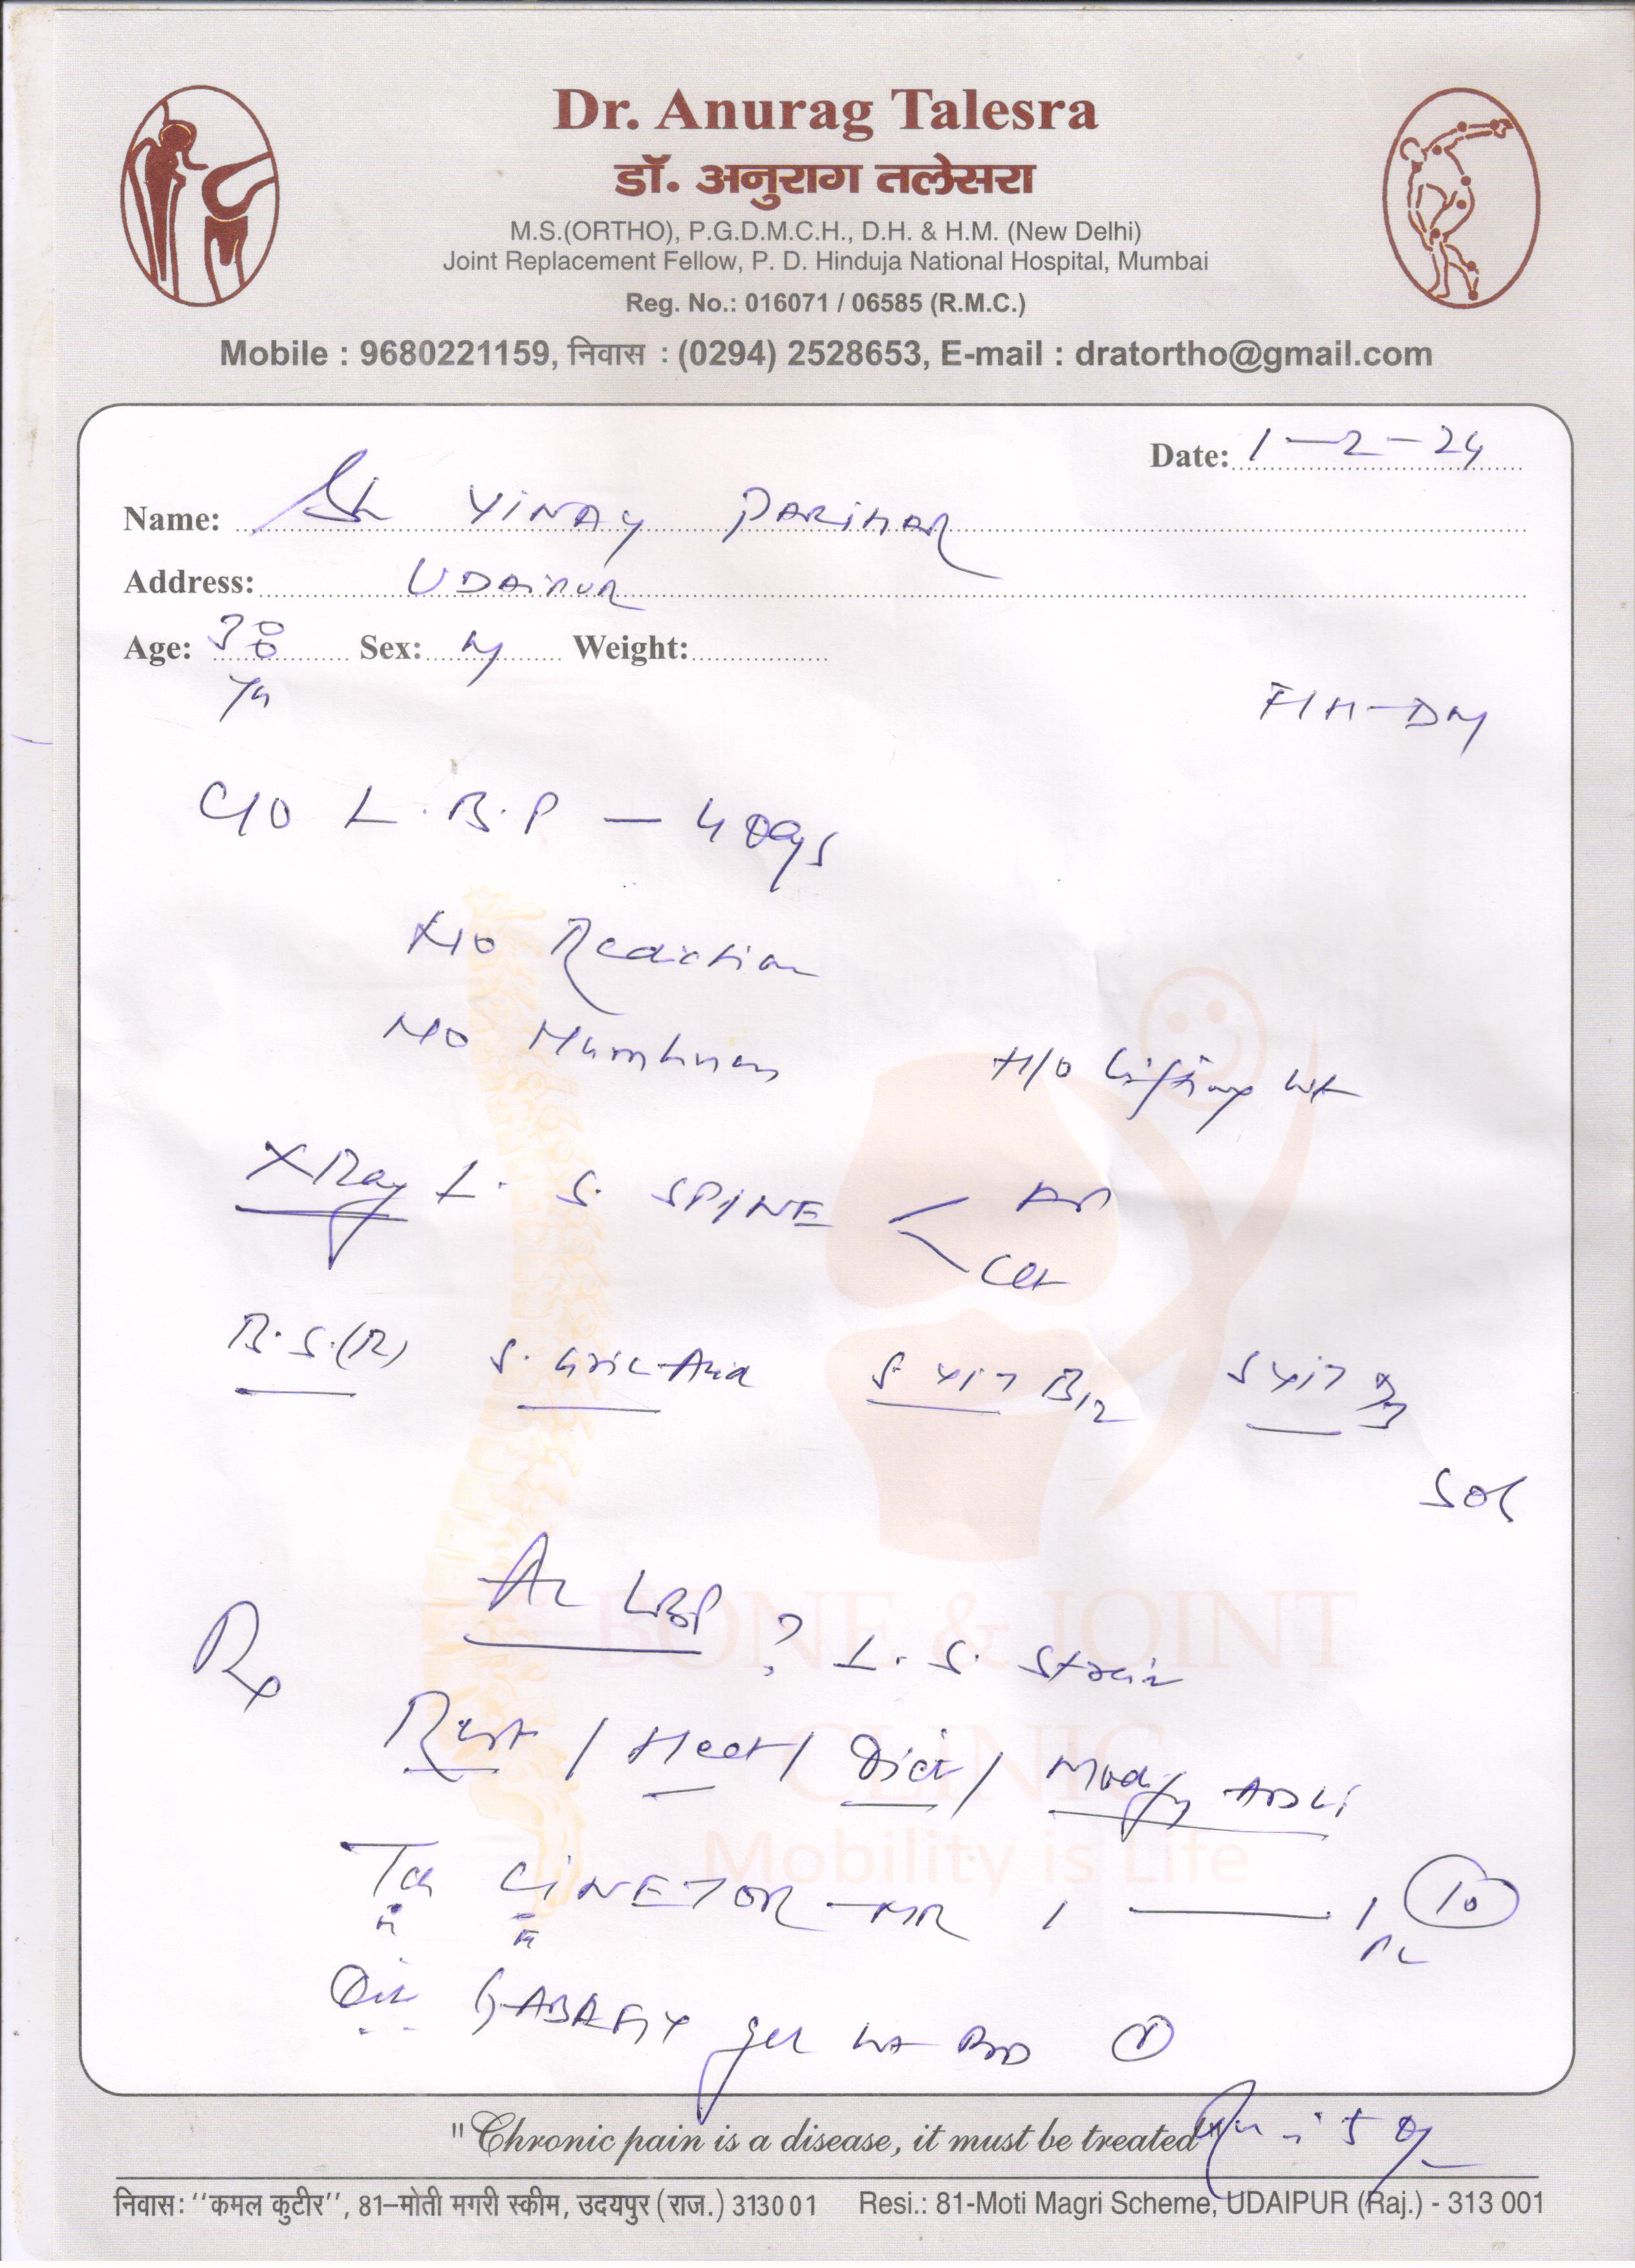 Dr. Anurag Talesra
डॉ. अनुराग तलेसरा
M.S.(ORTHO), P.G.D.M.C.H., D.H. & H.M. (New Delhi)
Joint Replacement Fellow, P. D. Hinduja National Hospital, Mumbai
Reg. No.: 016071 / 06585 (R.M.C.)
Mobile : 9680221159, निवास : (0294) 2528653, E-mail : dratortho@gmail.com
Date: 1-2-24
Name: Sh VINAY PARIHAR
Address: UDAIPUR
Age: 38 Sex: M Weight:
F/H-DM
C/O L.B.P - 4 days
No Radiation
No Numbness
H/O Lifting wt
X Ray L. S. SPINE < AP
Lat
B.S.(R) S. Uric Acid S. VIT B12 S VIT D3
SOS
Ac LBP
Rx
? L. S. Strain
Rest / Heat / Diet / Modify ADLs
Tab CINETOR-MR 1 — 1 10
PC
Oint GABAFIX gel LA BD 1
"Chronic pain is a disease, it must be treated"
5 d
BONE & JOINT
CLINIC
Mobility is Life
निवास: ''कमल कुटीर'', 81–मोती मगरी स्कीम, उदयपुर (राज.) 313001 Resi.: 81-Moti Magri Scheme, UDAIPUR (Raj.) - 313 001